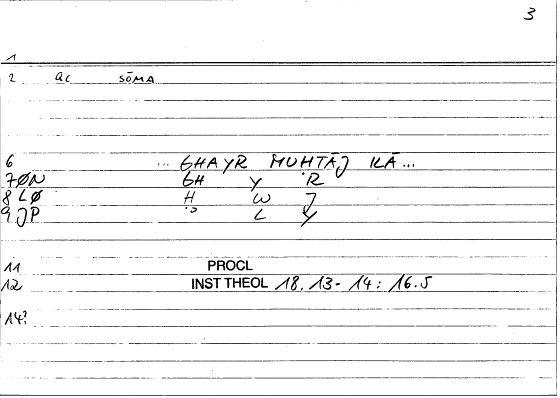 3
1
2 ac SŌMA
6 ... GHAYR MUḤTĀJ ILĀ...
7 ØN GH Y R
8 LØ Ḥ W J
9 JP L Y
11 PROCL
12 INST THEOL 18.13-14: 16.5
14?